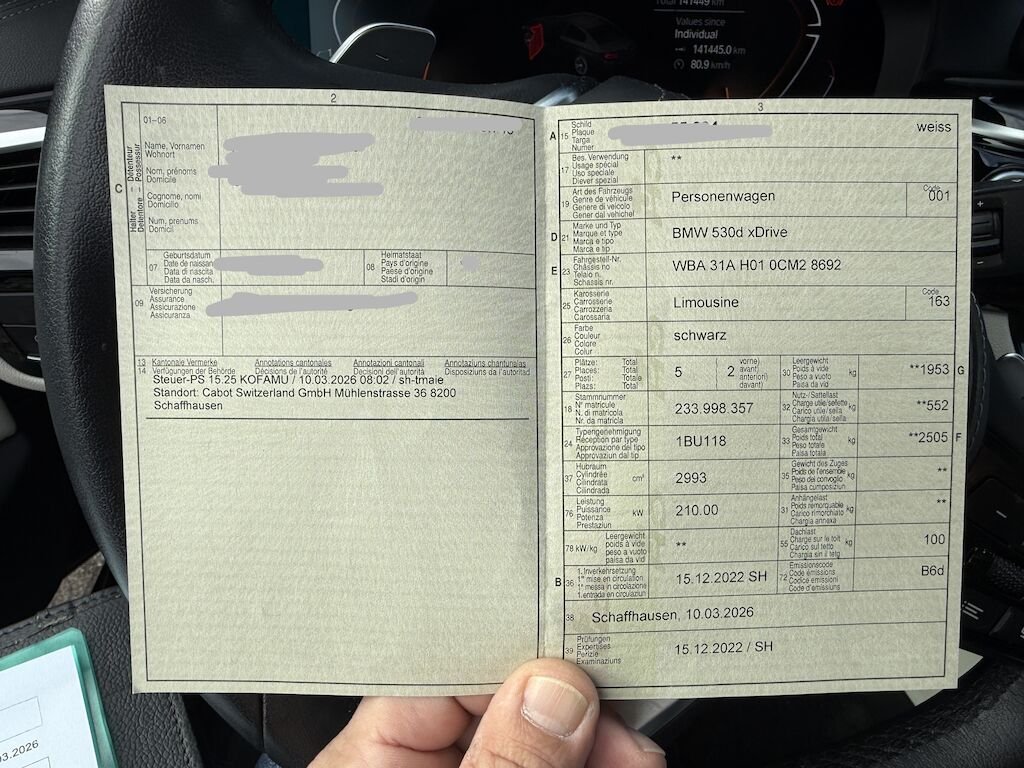 Total 141449 km
Values since
Individual
141445.0 km
80.9 km/h
2
01–06
C
Halter Détenteur
Detentore – Possessur
Name, Vornamen
Wohnort
Nom, prénoms
Domicile
Cognome, nomi
Domicilio
Num, prenums
Domicil
07
Geburtsdatum
Date de naissan
Data di nascita
Data da nasch.
08
Heimatstaat
Pays d'origine
Paese d'origine
Stadi d'origin
09
Versicherung
Assurance
Assicurazione
Assicuranza
13
14
Kantonale Vermerke
Verfügungen der Behörde
Annotations cantonales
Décisions de l'autorité
Annotazioni cantonali
Decisioni dell'autorità
Annotaziuns chantunalas
Disposiziuns da l'autoritad
Steuer-PS 15.25 KOFAMU / 10.03.2026 08:02 / sh-tmaie
Standort: Cabot Switzerland GmbH Mühlenstrasse 36 8200
Schaffhausen
3
A 15
Schild
Plaque
Targa
Numer
weiss
17
Bes. Verwendung
Usage spécial
Uso speciale
Diever spezial
**
19
Art des Fahrzeugs
Genre de véhicule
Genere di veicolo
Gener dal vehichel
Personenwagen
Code
001
D 21
Marke und Typ
Marque et type
Marca e tipo
Marca e tip
BMW 530d xDrive
E 23
Fahrgestell-Nr.
Châssis no
Telaio n.
Schassis nr.
WBA 31A H01 0CM2 8692
25
Karosserie
Carrosserie
Carrozzeria
Carossaria
Limousine
Code
163
26
Farbe
Couleur
Colore
Colur
schwarz
27
Plätze: Total
Places: Total
Posti: Totale
Plazs: Total
5
( vorne)
2 avant)
anteriori)
davant)
30
Leergewicht
Poids à vide
Peso a vuoto
Paisa da vid
kg
**1953
G
18
Stammnummer
N° matricule
N. di matricola
Nr. da matricla
233.998.357
32
Nutz-/Sattellast
Charge utile/sellette
Carico utile/sella
Chargia utila/sella
kg
**552
24
Typengenehmigung
Réception par type
Approvazione del tipo
Approvaziun dal tip
1BU118
33
Gesamtgewicht
Poids total
Peso totale
Paisa totala
kg
**2505
F
37
Hubraum
Cylindrée
Cilindrata
Cilindrada
cm³
2993
35
Gewicht des Zuges
Poids de l'ensemble
Peso del convoglio
Paisa cumposiziun
kg
**
76
Leistung
Puissance
Potenza
Prestaziun
kW
210.00
31
Anhängelast
Poids remorquable
Carico rimorchiato
Chargia annexa
kg
**
78 kW/kg
Leergewicht
poids à vide
peso a vuoto
paisa da vid
**
55
Dachlast
Charge sur le toit
Carico sul tetto
Chargia sin il tetg
kg
100
B 36
1. Inverkehrsetzung
1re mise en circulation
1a messa in circolazione
1. entrada en circulaziun
15.12.2022 SH
72
Emissionscode
Code émissions
Codice emissioni
Code d'emissiuns
B6d
38
Schaffhausen, 10.03.2026
39
Prüfungen
Expertises
Perizie
Examinaziuns
15.12.2022 / SH
03.2026